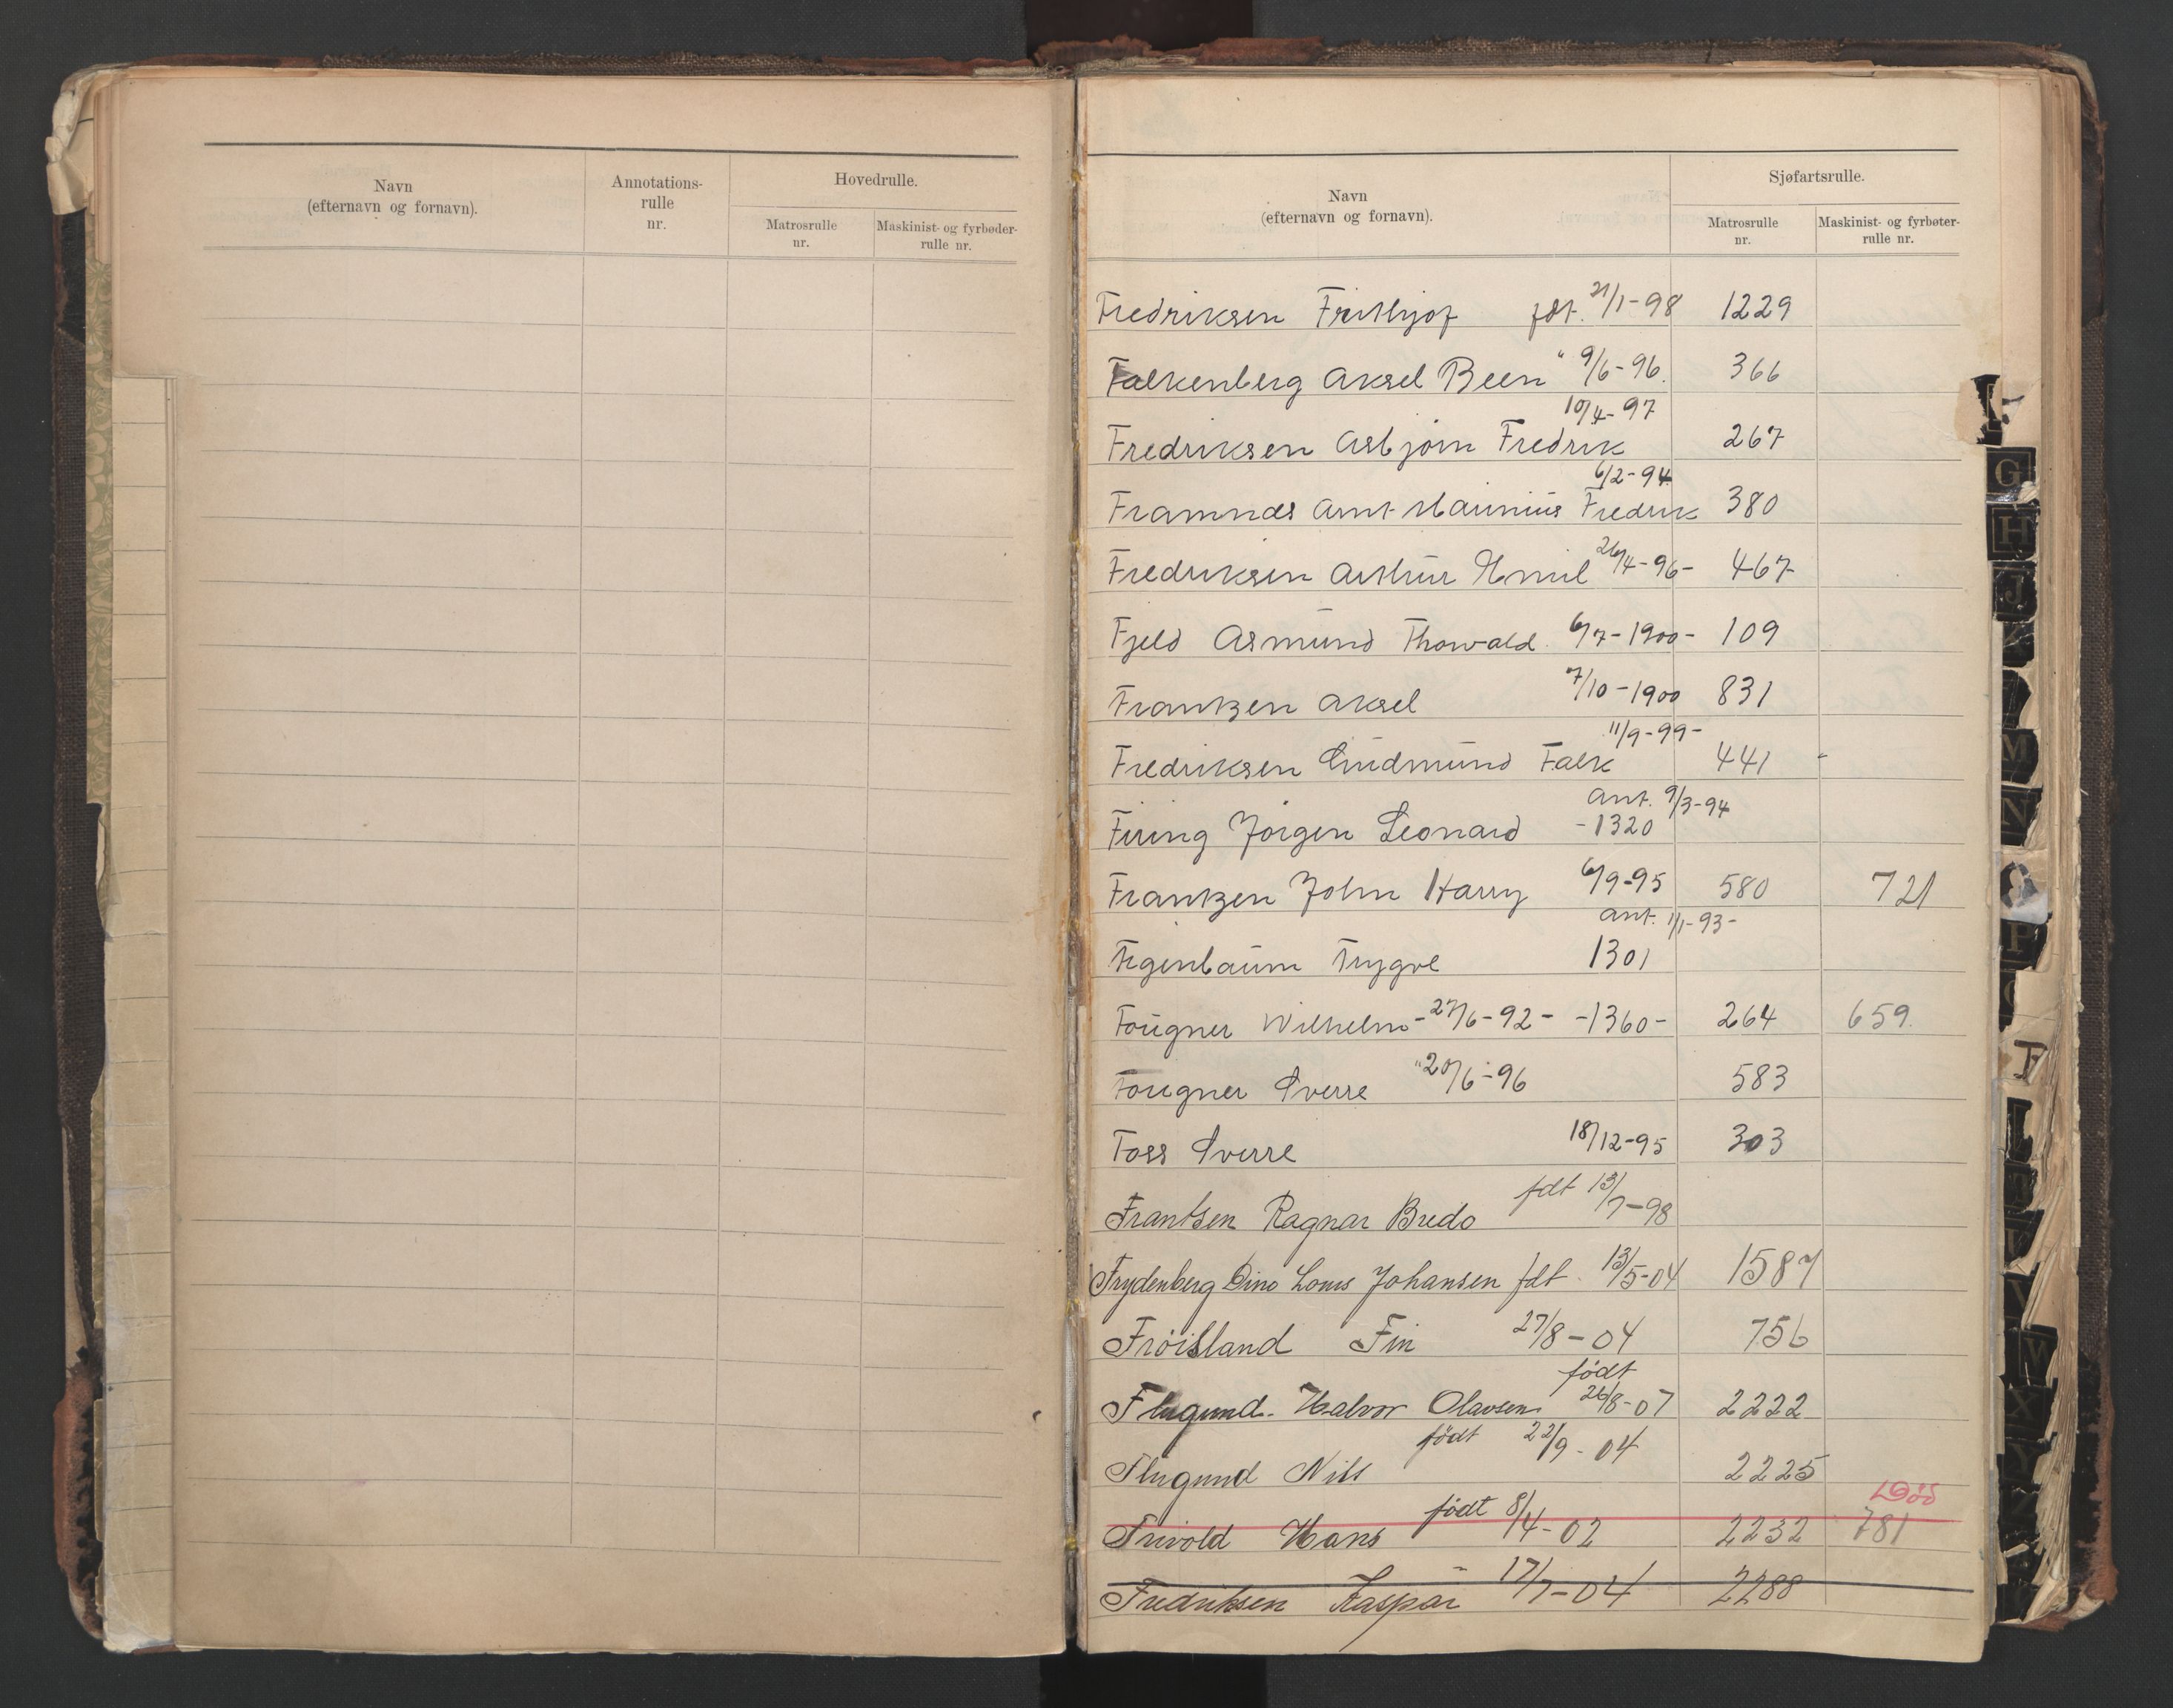 Navn
(efternavn og fornavn).
Annotations-
rulle
nr.
Hovedrulle.
Matrosrulle
nr.
Maskinist- og fyrbøder-
rulle nr.
Navn
(efternavn og fornavn).
Sjøfartsrulle.
Matrosrulle
nr.
Maskinist- og fyrbøter-
rulle nr.
Fredriksen Frithjof fdt. 21/1-98 1229
Falkenberg Aksel Been " 9/6-96. 366
10/4-97
Fredriksen Asbjørn Fredrik 267
6/2-94
Framnæs Arnt Marinius Fredrik 380
Fredriksen Arthur Emil 26/4-96- 467
Fjeld Asmund Thorvald 6/7-1900- 109
Frantzen Aksel 7/10-1900 831
11/9-99-
Fredriksen Gudmund Falk 441
Ant. 9/3-94
Firing Jørgen Leonard -1320
Frantzen John Harry 6/9-95 580 721
Ant. 1/1-93-
Figenbaum Trygve 1301
Fougner Wilhelm -27/6-92- -1360- 264 659.
Fougner Sverre "20/6-96 583
Foss Sverre 18/12-95 303
Frantsen Ragnar Bredo fdt 13/7-98
Frydenberg Louis Johansen fdt. 13/5-04 1587
Frøisland Fin 27/8-04 756
født
Flugund. Halvor Olavsen 26/8-07 2222
født 22/9-04
Flugund Nils 2225
Død
Frivold Hans født 8/4-02 2232 781
Fredriksen Kaspar 17/7-04 2288
F
G
H
J
M
N
P
T
V
W
X
Y